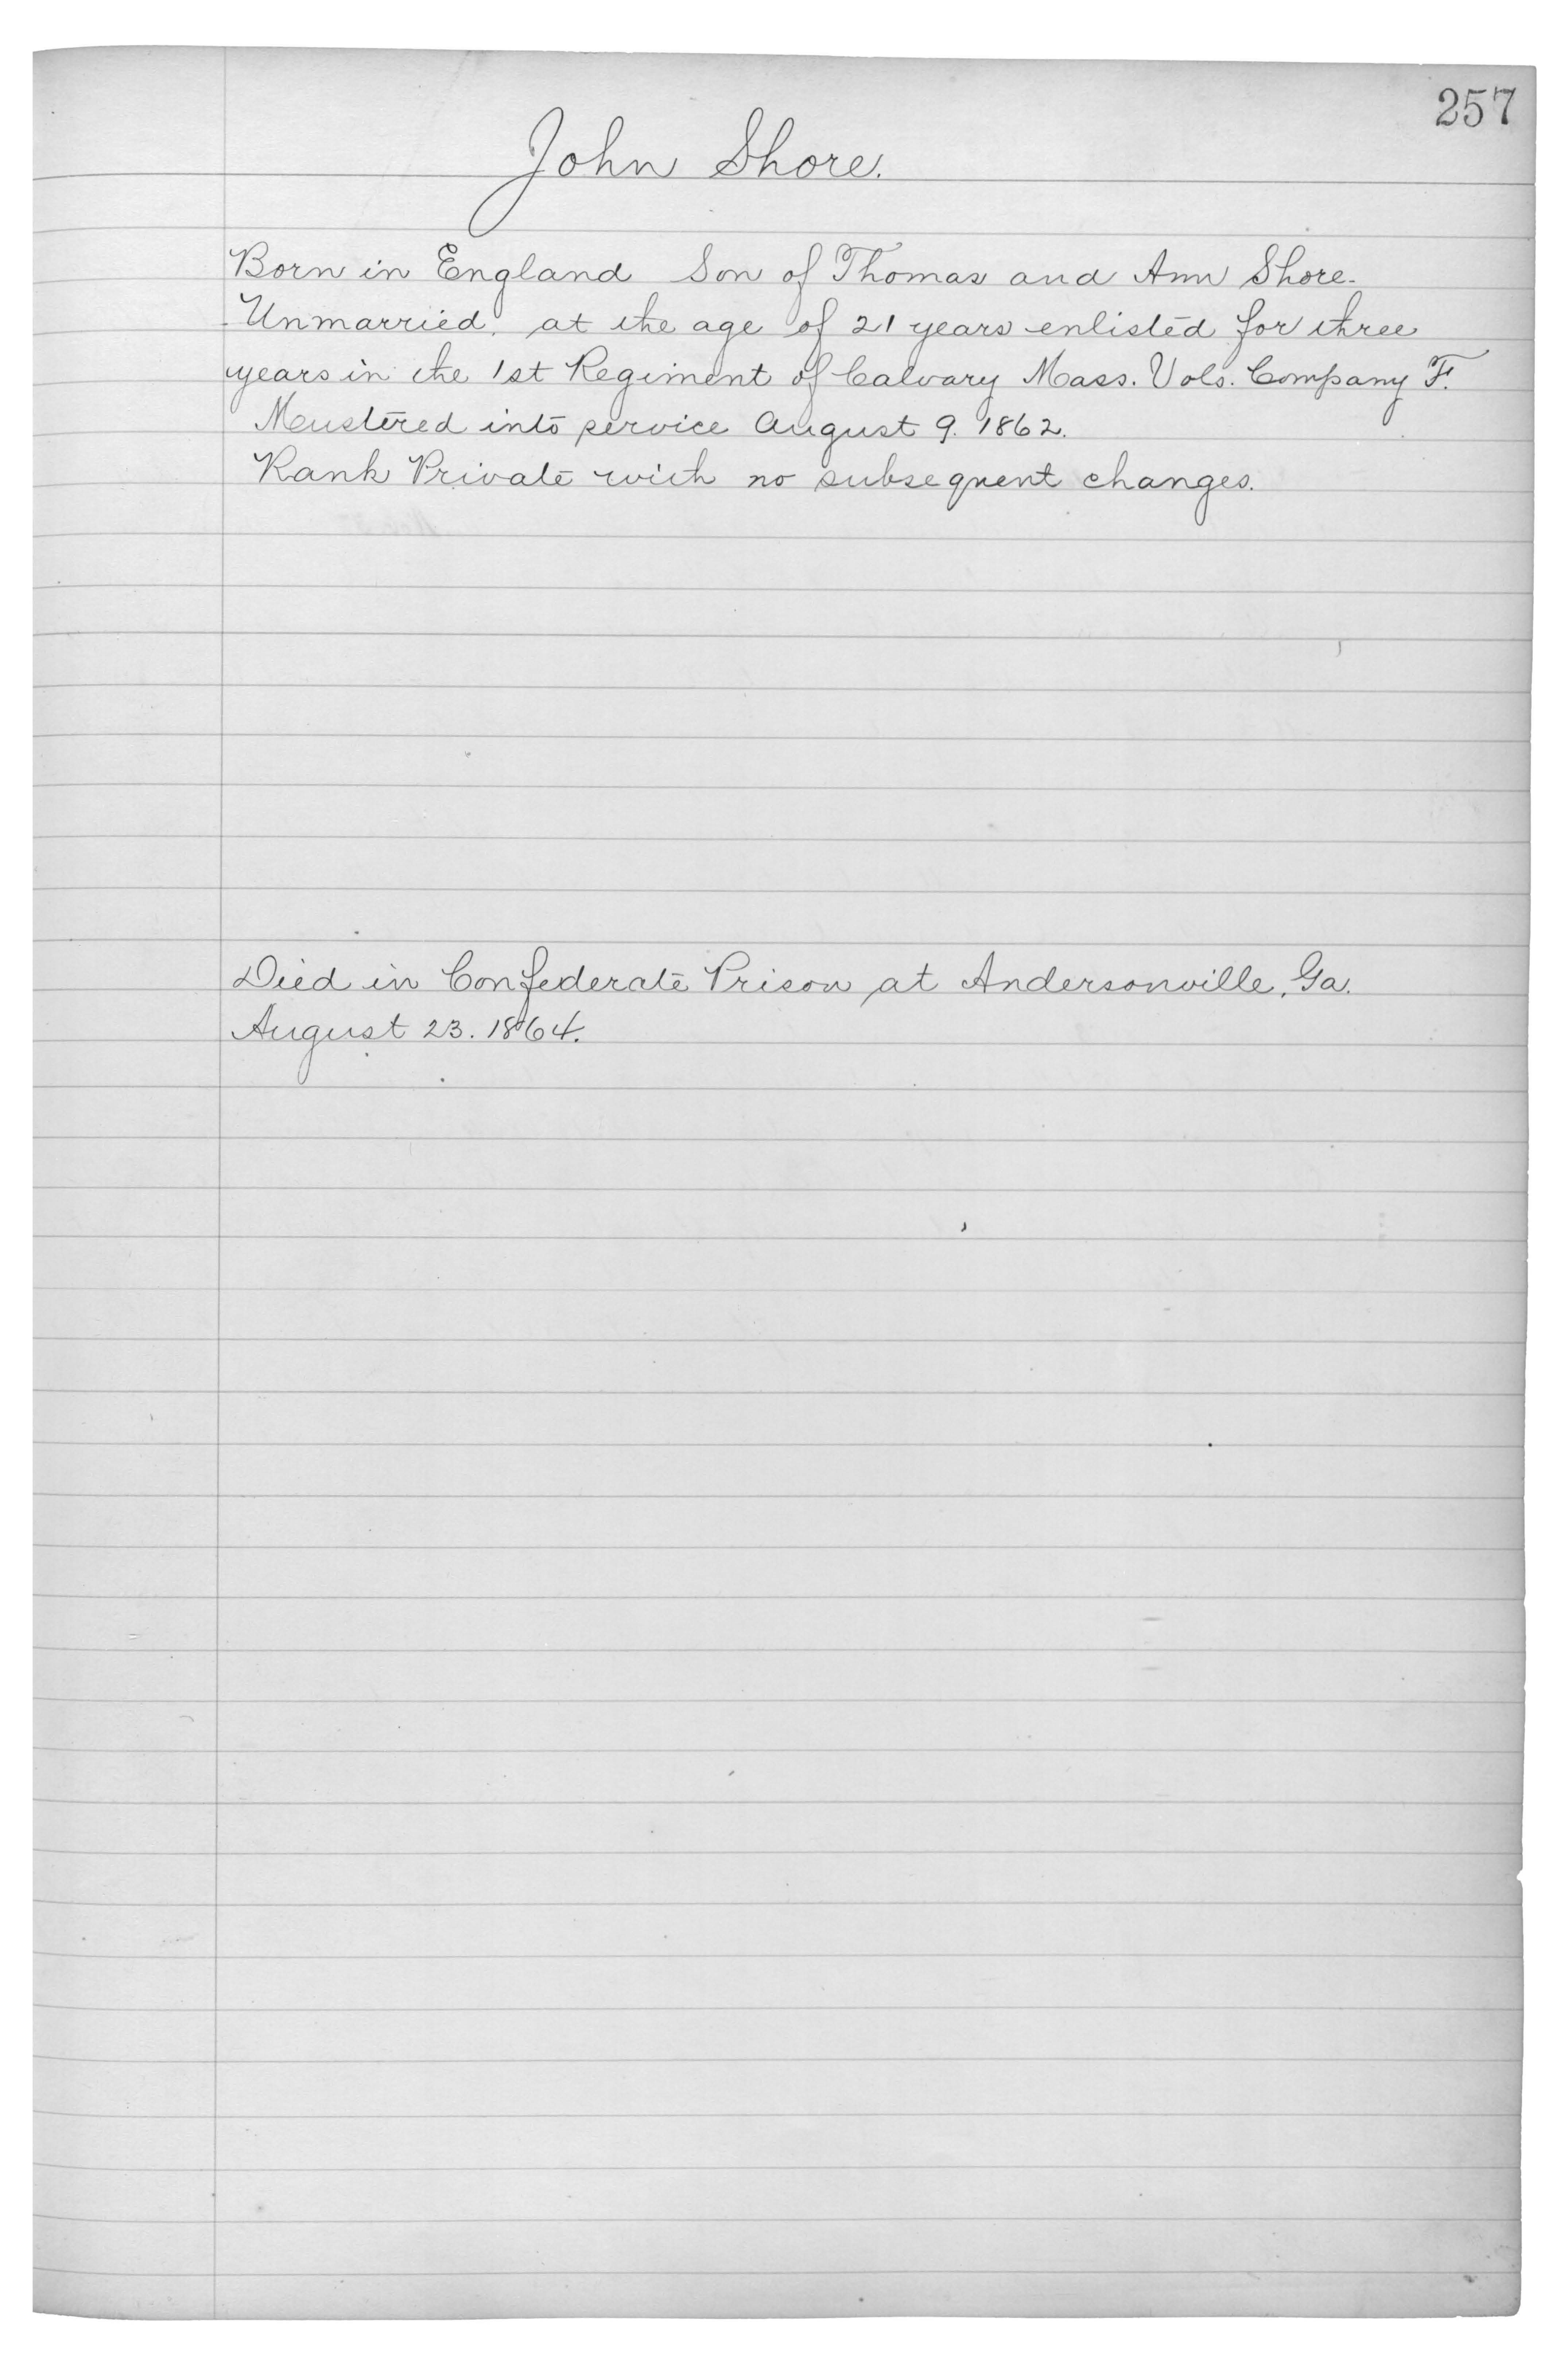 257
John Shore.
Born in England Son of Thomas and Ann Shore.
Unmarried. at the age of 21 years enlisted for three
years in the 1st Regiment of Calvary Mass. Vols. Company F.
Mustered into service August 9. 1862.
Rank Private with no subsequent changes.
Died in Confederate Prison at Andersonville, Ga.
August 23. 1864.